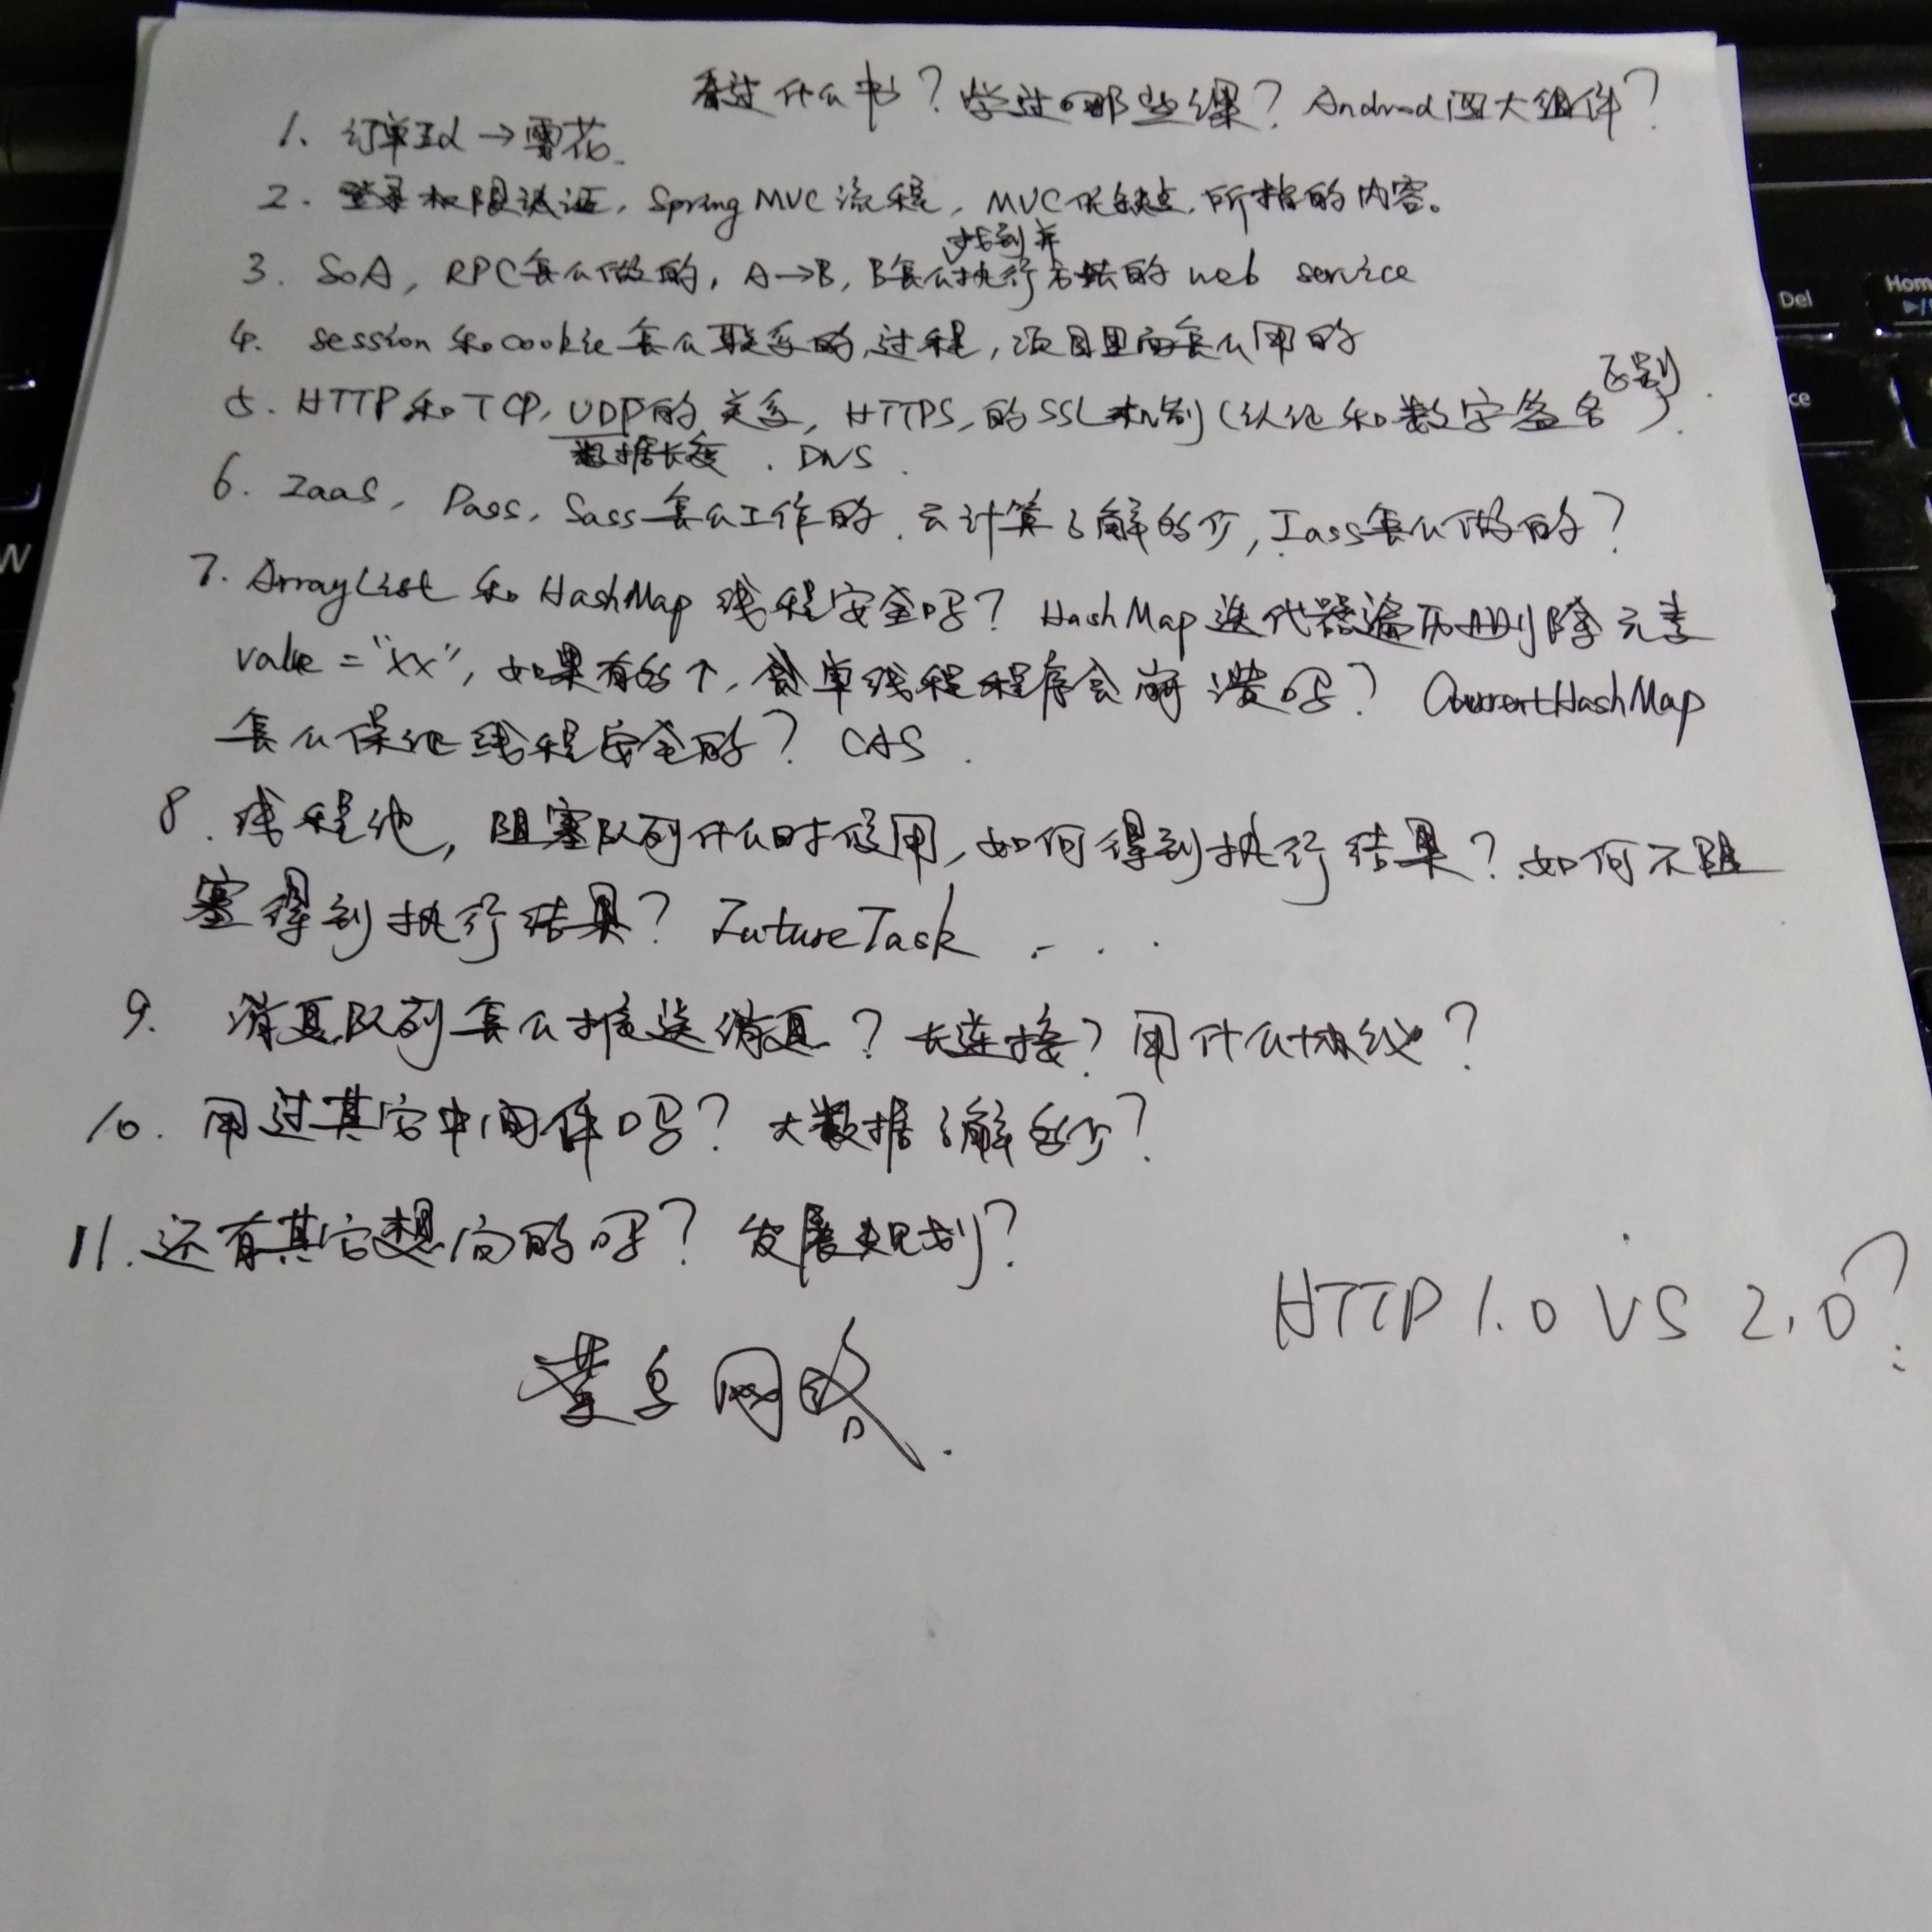 看过什么书？学过哪些课？Android四大组件？
1. 订单Id → 雪花.
2. 登录权限认证, Spring MVC 流程, MVC优缺点, 所指的内容。
找到并
3. SOA, RPC怎么做的, A→B, B怎么执行方法的 web service
4. session 和 cookie 怎么联系的, 过程, 项目里面怎么用的
区别
5. HTTP和TCP, UDP的关系, HTTPS, 的SSL机制 (认证和数字签名).
数据长度 . DNS .
6. IaaS, Pass, Sass怎么工作的. 云计算了解多少, Iass怎么做的?
7. ArrayList 和 HashMap 线程安全吗? HashMap 迭代器遍历删除元素
value = "xx", 如果有多个, 单线程程序会崩溃吗? CurrentHashMap
怎么保证线程安全的? CAS .
8. 线程池, 阻塞队列什么时候用, 如何得到执行结果? 如何不阻
塞得到执行结果? FutureTask . . .
9. 消息队列怎么推送消息? 长连接? 用什么协议?
10. 用过其它中间件吗? 大数据了解多少?
11. 还有其它想问的吗? 发展规划?
HTTP 1.0 VS 2.0?
网络.